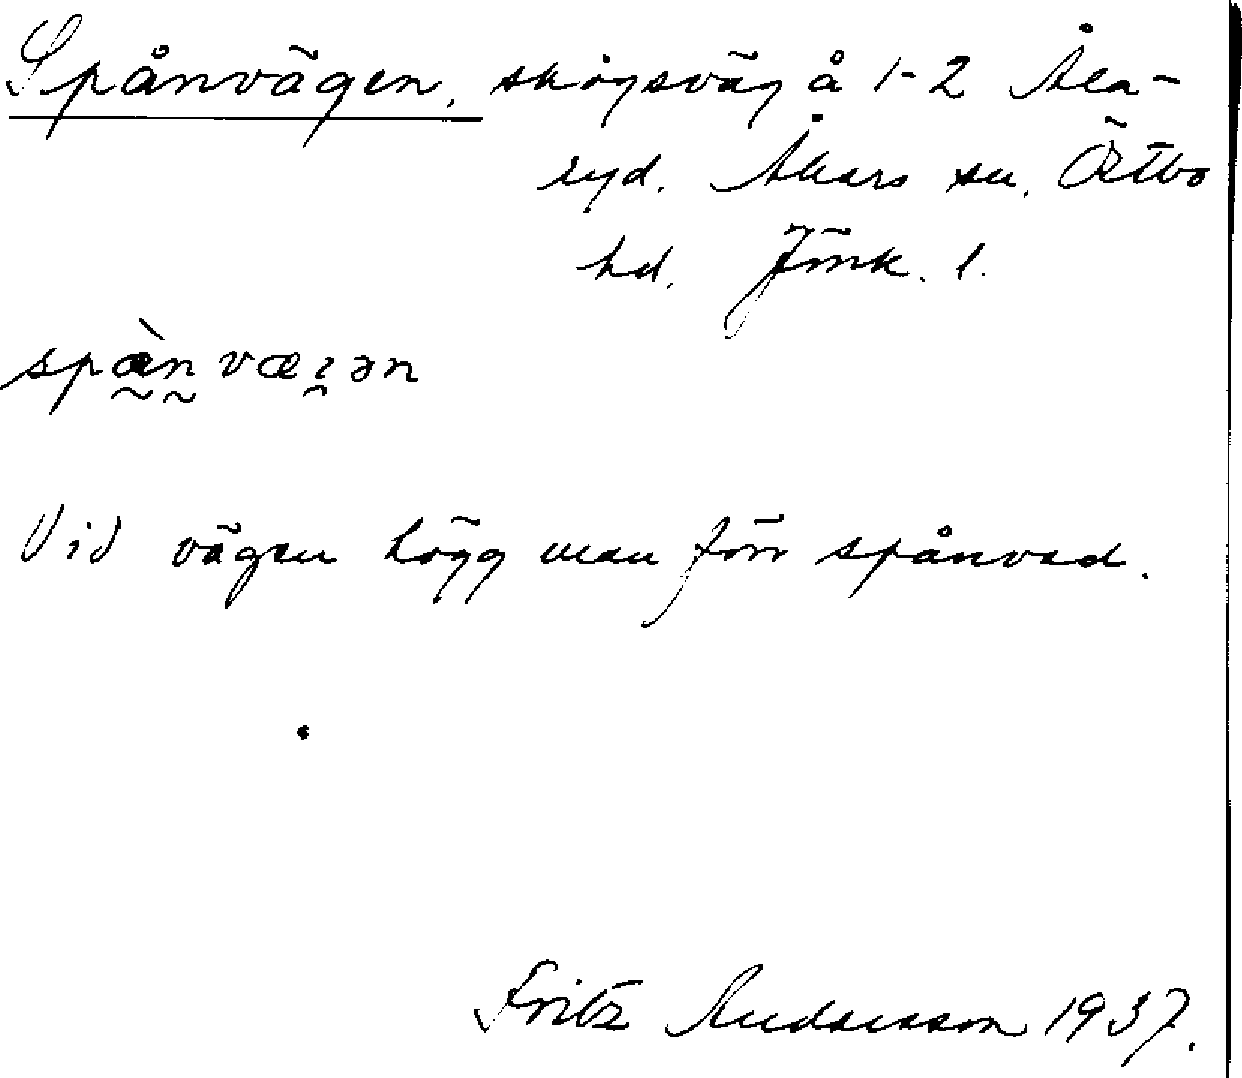 Spånvägen, skogsväg å 1-2 Åla-
ryd. Åkers sn. Östbo
hd. Jönk. l.
spàn væꞮən
Vid vägen högg man förr spånved.
Fritz Andersson 1937.